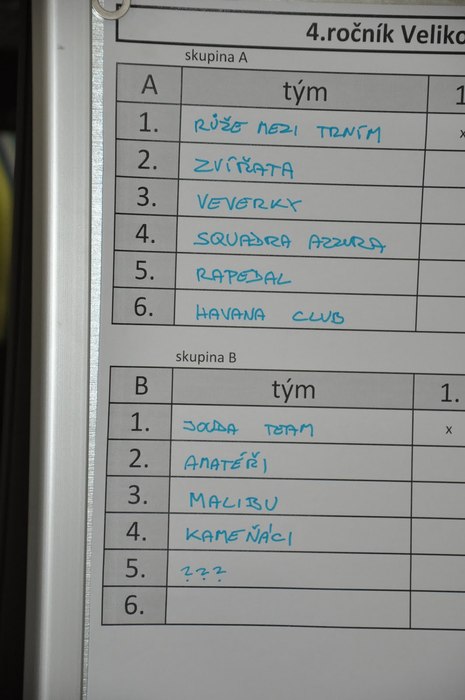 4.ročník Veliko
skupina A
A tým 1
1. RŮŽE MEZI TRNÍM x
2. ZVÍŘATA
3. VEVERKY
4. SQUADRA AZZURA
5. RAPEDAL
6. HAVANA CLUB
skupina B
B tým 1.
1. JOUDA TEAM x
2. AMATÉŘI
3. MALIBU
4. KAMEŇÁCI
5. ???
6.